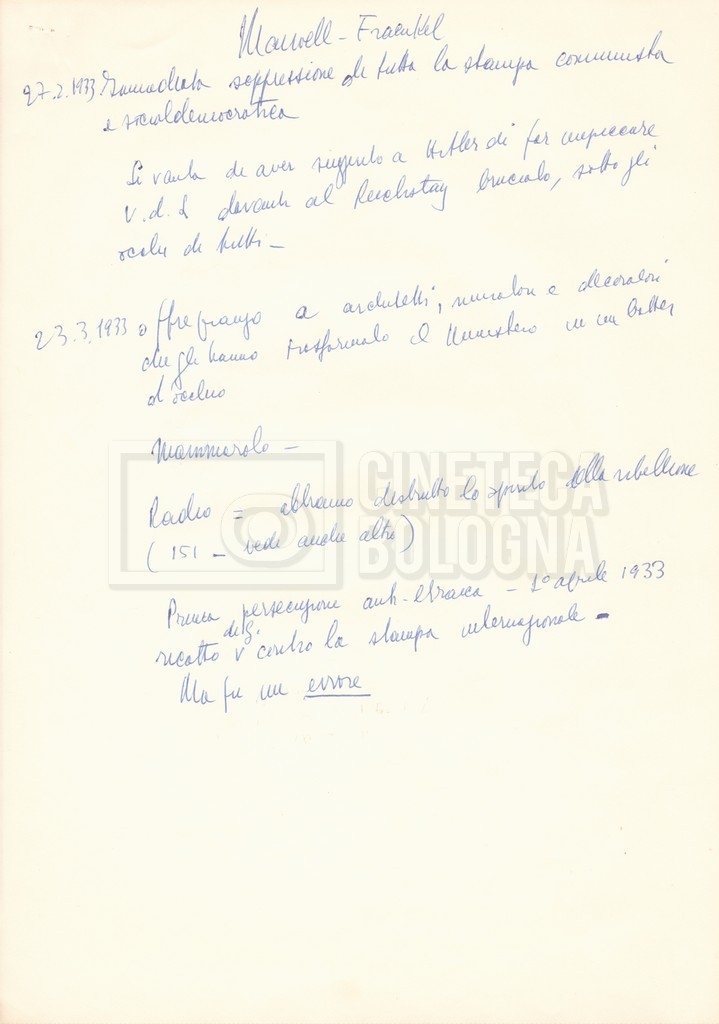 Manvell - Fraenkel
27.2.1933. Immediata soppressione di tutta la stampa comunista
e socialdemocratica
Si vanta di aver suggerito a Hitler di far impiccare
V.d.L davanti al Reichstag bruciato, sotto gli
occhi di tutti -
23.3.1933 a architetti, muratori e decoratori
che gli hanno trasformato il Ministero in un batter
d'occhio
Mammarolo -
Radio = abbiamo distrutto lo spirito della ribellione
(151 - vedi anche altro)
CINETECA
BOLOGNA
Prima persecuzione anti-ebraica - 1° aprile 1933
di G.
ricatto v contro la stampa internazionale -
Ma fu un errore